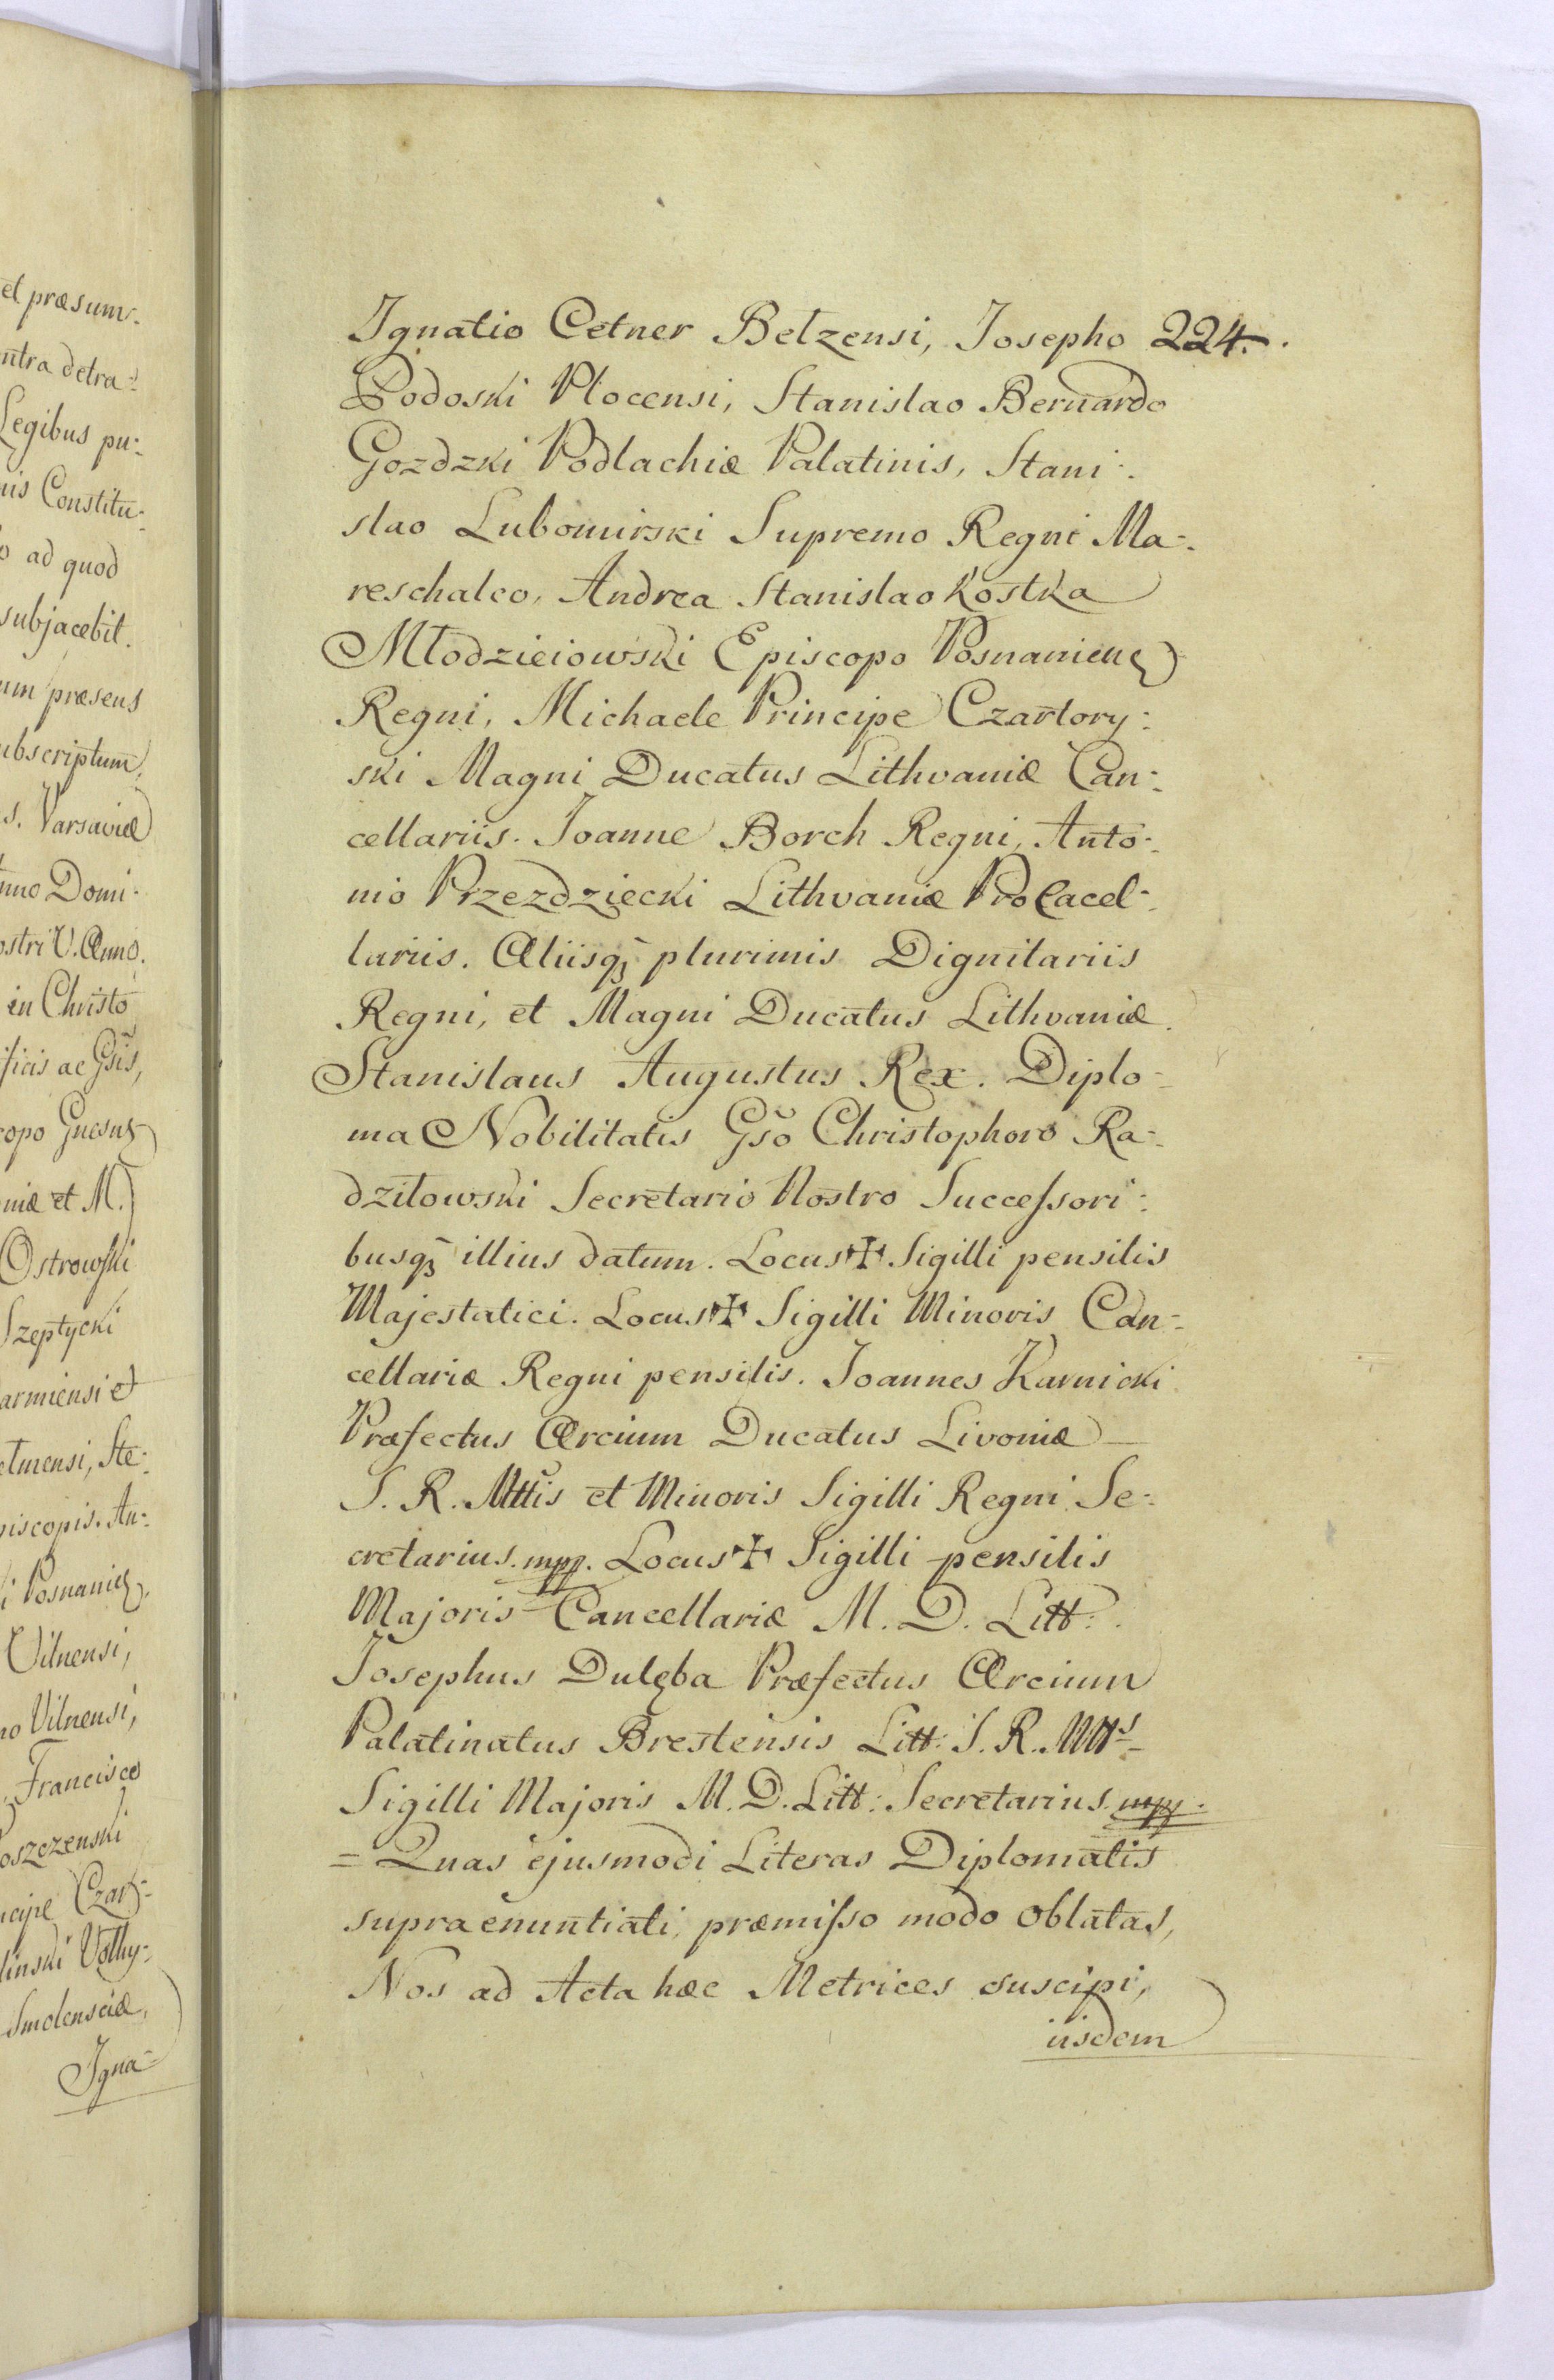 et præsum-
ntra detra-
Legibus pu-
nis Constitu-
o ad quod
subjacebit.
um præsens
ubscriptum,
s. Varsaviæ
nno Domi-
ostri V. Anno.
in Christo
ficis ac Gsis,
copo Gnesn
niæ et M.
Ostrowski
Szeptycki
armiensi et
elmensi, Ste-
piscopis. An-
i Posnanien,
Vilnensi,
no Vilnensi,
Francisco
oszczenski
ncipe Czar-
linski Volhy-
Smolensciæ,
Igna-
Ignatio Cetner Belzensi, Josepho 224.
Podoski Plocensi, Stanislao Bernardo
Gozdzki Podlachiæ Palatinis, Stani-
slao Lubomirski Supremo Regni Ma-
reschalco, Andrea Stanislao Kostka
Młodzieiowski Episcopo Posnanien
Regni, Michaele Principe Czartory-
ski Magni Ducatus Lithvaniæ Can-
cellariis. Joanne Borch Regni, Anto-
nio Przezdziecki Lithvaniæ ProCacel-
lariis. Aliisq plurimis Dignitariis
Regni, et Magni Ducatus Lithvaniæ.
Stanislaus Augustus Rex. Diplo-
ma Nobilitatis Gso Christophoro Ra-
dziłowski Secretario Nostro Successori-
busq illius datum. Locus ✠ Sigilli pensilis
Majestatici. Locus ✠ Sigilli Minoris Can-
cellariæ Regni pensilis. Joannes Karnicki
Præfectus Arcium Ducatus Livoniæ
S. R. Mttis et Minoris Sigilli Regni Se-
cretarius. mpp. Locus ✠ Sigilli pensilis
Majoris Cancellariæ M. D. Litt:
Josephus Dulęba Præfectus Arcium
Palatinatus Brestensis Litt: S. R. Mtts
Sigilli Majoris M. D. Litt: Secretarius. mpp.
= Quas ejusmodi Literas Diplomatis
supra enuntiati, præmisso modo oblatas,
Nos ad Acta hæc Metrices suscipi,
iisdem